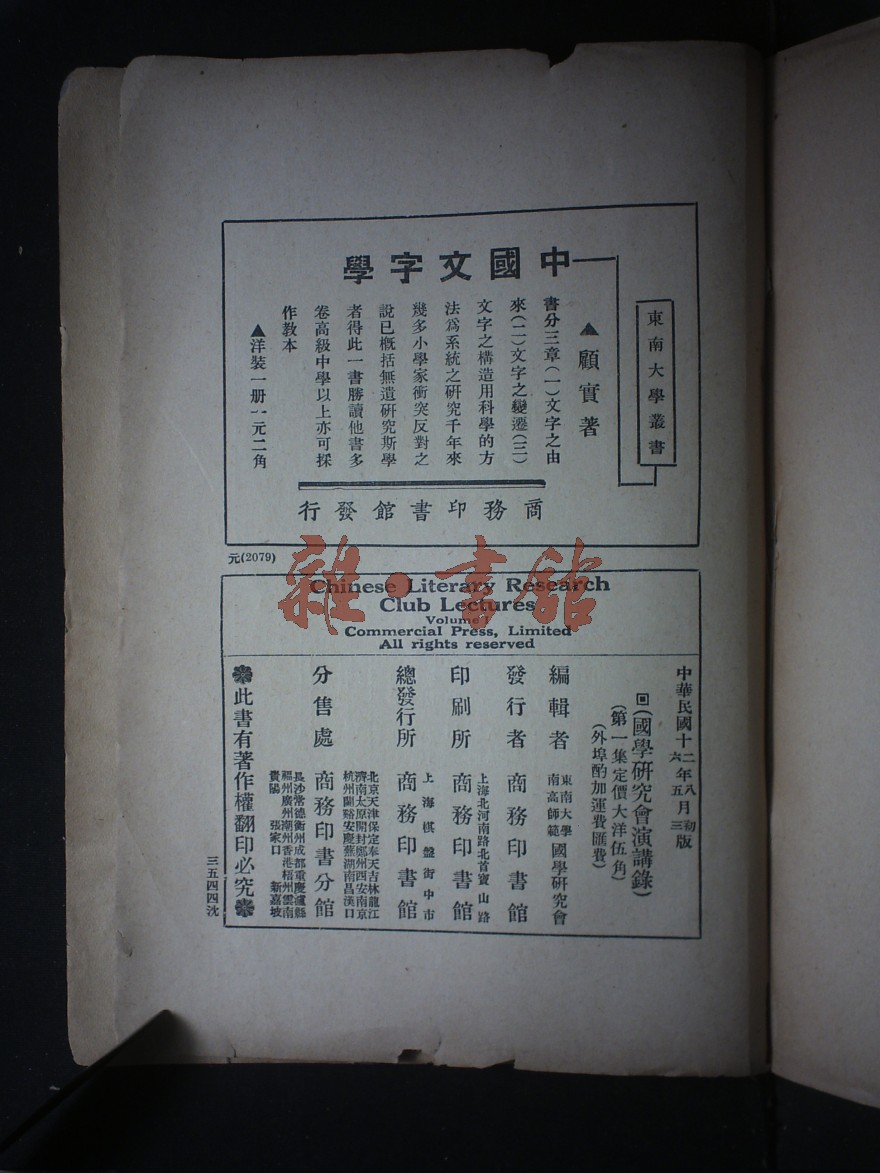 東南大學叢書
中國文字學
▲顧實著
書分三章(一)文字之由
來(二)文字之變遷(三)
文字之構造用科學的方
法爲系統之研究千年來
幾多小學家衝突反對之
說已概括無遺研究斯學
者得此一書勝讀他書多
卷高級中學以上亦可採
作教本
▲洋裝一册一元二角
商務印書館發行
元(2079)
雜·書館
Chinese Literary Research
Club Lectures
Volume I
Commercial Press, Limited
All rights reserved
中華民國十二年八月初版
六年五三
(國學研究會演講錄)
(第一集定價大洋伍角)
(外埠酌加運費匯費)
編輯者 東南大學南高師範國學研究會
發行者 商務印書館
上海北河南路北首寶山路
印刷所 商務印書館
上海棋盤街中市
總發行所 商務印書館
北京天津保定奉天吉林龍江
濟南太原開封鄭州西安南京
杭州蘭谿安慶蕪湖南昌漢口
分售處 商務印書分館
長沙常德衡州成都重慶瀘縣
福州廣州潮州香港梧州雲南
貴陽 張家口 新嘉坡
此書有著作權翻印必究
三五四四沈